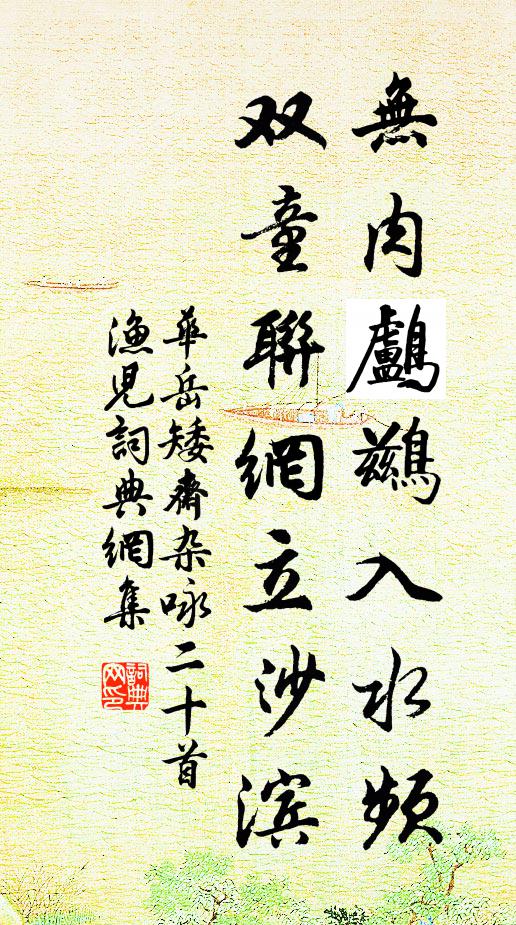 無肉鸕鷀入水頻
双童聯網立沙滨
華岳矮齋杂咏二十首
漁児詞典網集
詞典网印